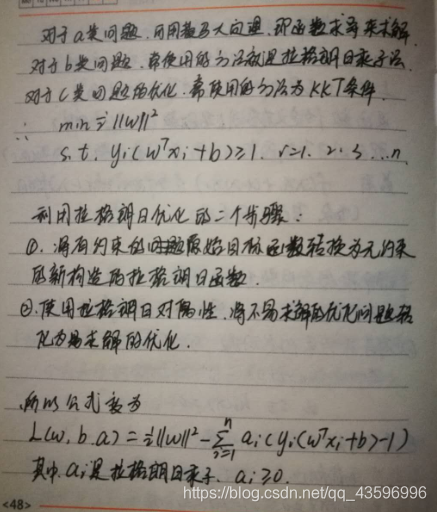 对于a类问题，可用费马大定理，即函数求导来求解
对于b类问题，常使用的方法是拉格朗日乘子法
对于c类问题的优化，常使用的方法为KKT条件.
∴ min ½||w||²
s.t. yi(wᵀxi+b)≥1. i=1. 2. 3 ...n
利用拉格朗日优化的二个步骤：
①. 将有约束的问题原始目标函数转换为无约束
的新构造的拉格朗日函数.
②. 使用拉格朗日对偶性，将不易求解的优化问题转
化为易求解的优化.
所以公式变为
L(w, b, a) = ½||w||² - Σⁿᵢ₌₁ ai(yi(wᵀxi+b)-1)
其中, ai是拉格朗日乘子. ai≥0.
<48>
https://blog.csdn.net/qq_43596996